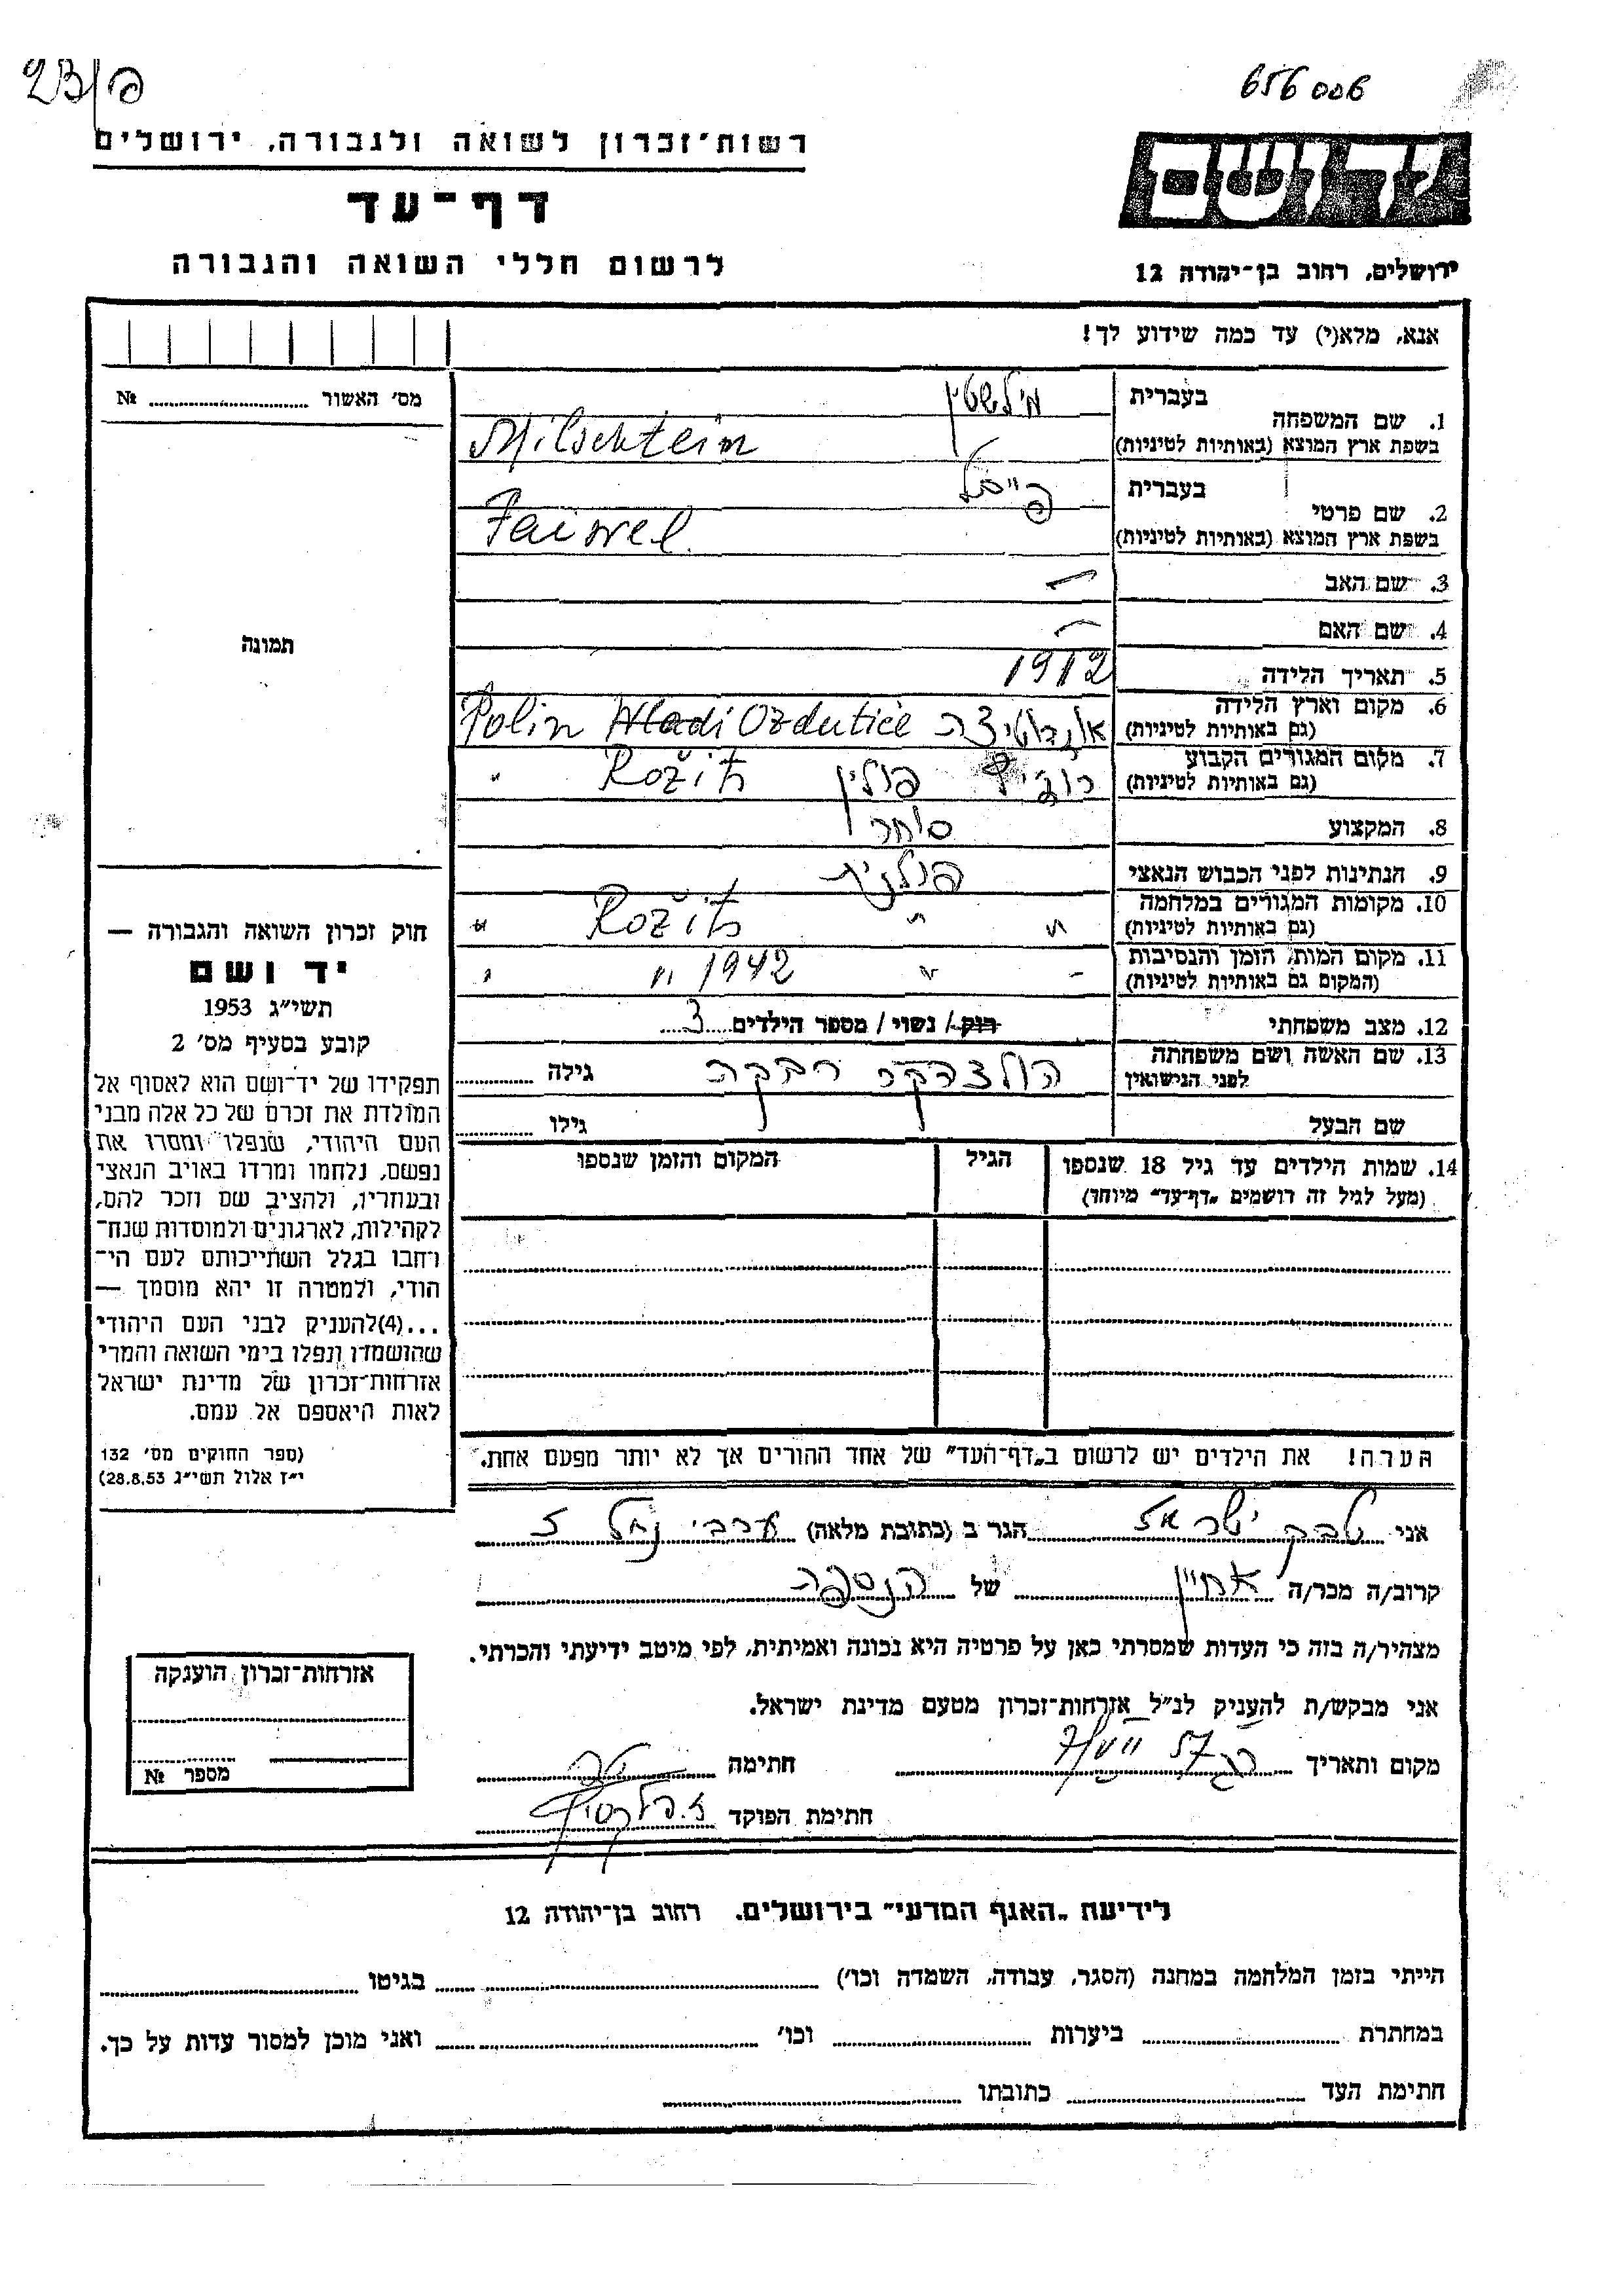 23/פ
656006
רשות־זכרון לשואה ולגבורה, ירושלים
דף־עד
לרשום חללי השואה והגבורה
יד ושם
ירושלים, רחוב בן־יהודה 12
אנא, מלא(י) עד כמה שידוע לך!
מס׳ האשור № 
1. שם המשפחה
בעברית מילשטין
בשפת ארץ המוצא (באותיות לטיניות) Milschtein
2. שם פרטי
בעברית
בשפת ארץ המוצא (באותיות לטיניות) Faiwel
3. שם האב —
4. שם האם —
5. תאריך הלידה 1912
6. מקום וארץ הלידה
(גם באותיות לטיניות) Polin Wladi Ozdutice
7. מקום המגורים הקבוע
(גם באותיות לטיניות) פולין Rožit "
8. המקצוע סוחר
9. הנתינות לפני הכבוש הנאצי פולנית
10. מקומות המגורים במלחמה
(גם באותיות לטיניות) " " Rožit "
11. מקום המות, הזמן והנסיבות
(המקום גם באותיות לטיניות) " " 1942 " "
12. מצב משפחתי רוק / נשוי / מספר הילדים 3
13. שם האשה ושם משפחתה
לפני הנישואין הולצהקר רבקה גילה
שם הבעל גילו
14. שמות הילדים עד גיל 18 שנספו
(מעל לגיל זה רושמים „דף־עד” מיוחד)
הגיל
המקום והזמן שנספו
תמונה
חוק זכרון השואה והגבורה —
יד ושם
תשי״ג 1953
קובע בסעיף מס׳ 2
תפקידו של יד־ושם הוא לאסוף אל
המולדת את זכרם של כל אלה מבני
העם היהודי, שנפלו ומסרו את
נפשם, נלחמו ומרדו באויב הנאצי
ובעוזריו, ולהציב שם וזכר להם,
לקהילות, לארגונים ולמוסדות שנח־
רחבו בגלל השתייכותם לעם הי־
הודי, ולמטרה זו יהא מוסמך —
...(4) להעניק לבני העם היהודי
שהושמדו ונפלו בימי השואה והמרי
אזרחות־זכרון של מדינת ישראל
לאות היאספם אל עמם.
(ספר החוקים מס׳ 132
י״ז אלול תשי״ג 28.8.53)
הערה! את הילדים יש לרשום ב„דף־העד” של אחד ההורים אך לא יותר מפעם אחת.
אני הגר ב (כתובת מלאה)
קרוב/ה מכר/ה אחיין של הנספה
מצהיר/ה בזה כי העדות שמסרתי כאן על פרטיה היא נכונה ואמיתית, לפי מיטב ידיעתי והכרתי.
אני מבקש/ת להעניק לנ״ל אזרחות־זכרון מטעם מדינת ישראל.
מקום ותאריך חתימה
חתימת הפוקד
אזרחות־זכרון הוענקה
מספר №
לידיעת „האגף המדעי” בירושלים. רחוב בן־יהודה 12
הייתי בזמן המלחמה במחנה (הסגר, עבודה, השמדה וכו׳) בגיטו
במחתרת ביערות וכו׳ ואני מוכן למסור עדות על כך.
חתימת העד כתובתו